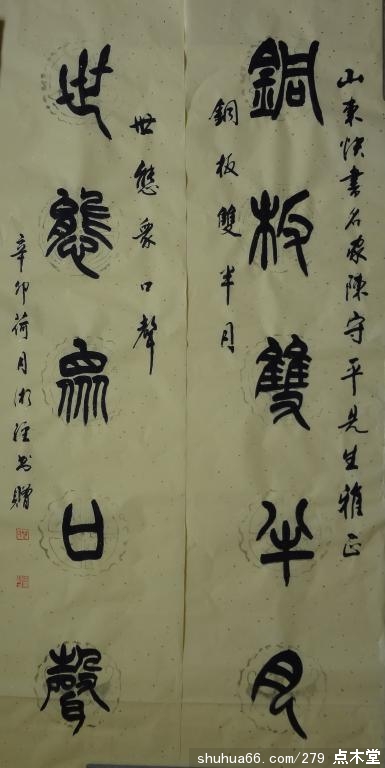 山東快書名家陳守平先生雅正
銅板雙半月
銅板雙半月
世態眾口聲
世態眾口聲
辛卯荷月湘淮书贈
shuhua66.com/279 点木堂